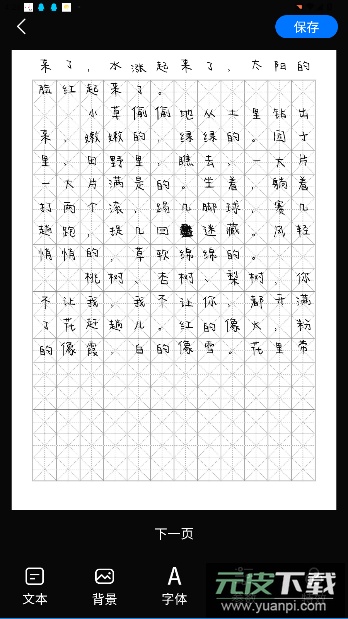 保存
来了，水涨起来了，太阳的
脸红起来了。
小草偷偷地从土里钻出
来，嫩嫩的，绿绿的。园子
里，田野里，瞧去，一大片
一大片满是的。坐着，躺着
打两个滚，踢几脚球，赛几
趟跑，捉几回迷藏。风轻
悄悄的，草软绵绵的。
桃树、杏树、梨树，你
不让我，我不让你，都开满
了花赶趟儿。红的像火，粉
的像霞，白的像雪。花里带
下一页
文本 背景 字体
元皮下载
www.yuanpi.com